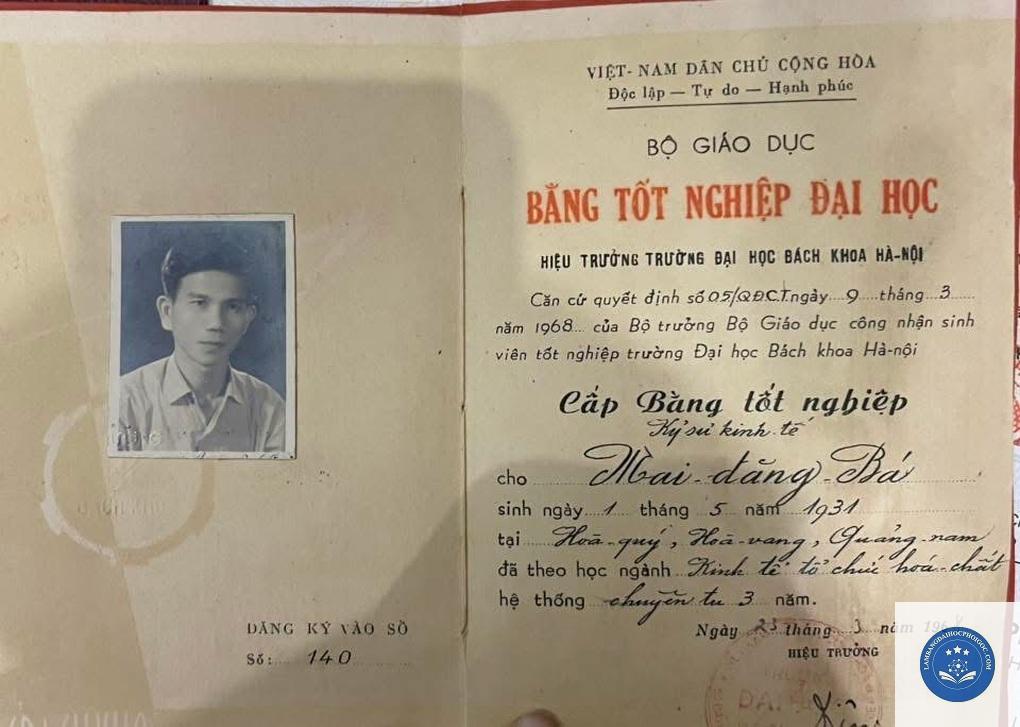 VIỆT-NAM DÂN CHỦ CỘNG HÒA
Độc lập — Tự do — Hạnh phúc
BỘ GIÁO DỤC
BẰNG TỐT NGHIỆP ĐẠI HỌC
HIỆU TRƯỞNG TRƯỜNG ĐẠI HỌC BÁCH KHOA HÀ-NỘI
Căn cứ quyết định số 05/QĐCT ngày 9 tháng 3
năm 1968 của Bộ trưởng Bộ Giáo dục công nhận sinh
viên tốt nghiệp trường Đại học Bách khoa Hà-nội
Cấp Bằng tốt nghiệp
Kỹ sư kinh tế
cho Mai-đăng-Bá
sinh ngày 1 tháng 5 năm 1931
tại Hoà-quý, Hoà-vang, Quảng-nam
đã theo học ngành Kinh tế tổ chức hoá-chất
hệ thống chuyên tu 3 năm.
Ngày 23 tháng 3 năm 196
HIỆU TRƯỞNG
ĐĂNG KÝ VÀO SỔ
Số: 140
LAMBANGDAIHOCPHOIGOC.COM